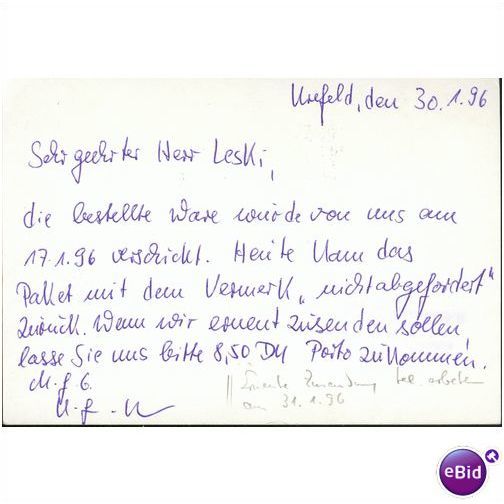 Krefeld, den 30.1.96
Sehr geehrter Herr Leski,
die bestellte Ware wurde von uns am
17.1.96 verschickt. Heute kam das
Paket mit dem Vermerk „nicht abgefordert"
zurück. Wenn wir erneut zusenden sollen
lasse Sie uns bitte 8,50 DM Porto zukommen.
M.f.G.
Erneute Zusendung tel. erbeten
am 31.1.96
eBid